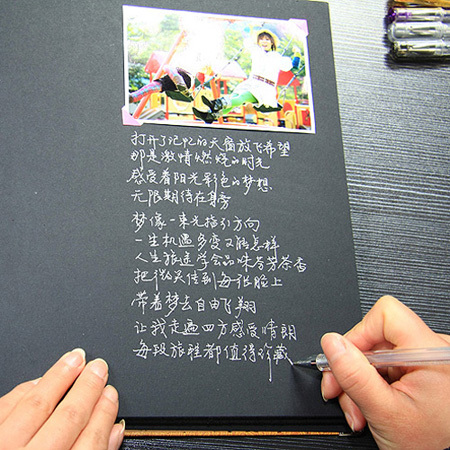 打开了记忆的天窗放飞希望
那是激情燃烧的时光
感受着阳光彩色的梦想
无限期待在身旁
梦像一束光指引方向
一生机遇多变又能怎样
人生旅途学会品味芬芳茶香
把微笑传到每张脸上
带着梦去自由飞翔
让我走遍四方感受晴朗
每段旅程都值得珍藏